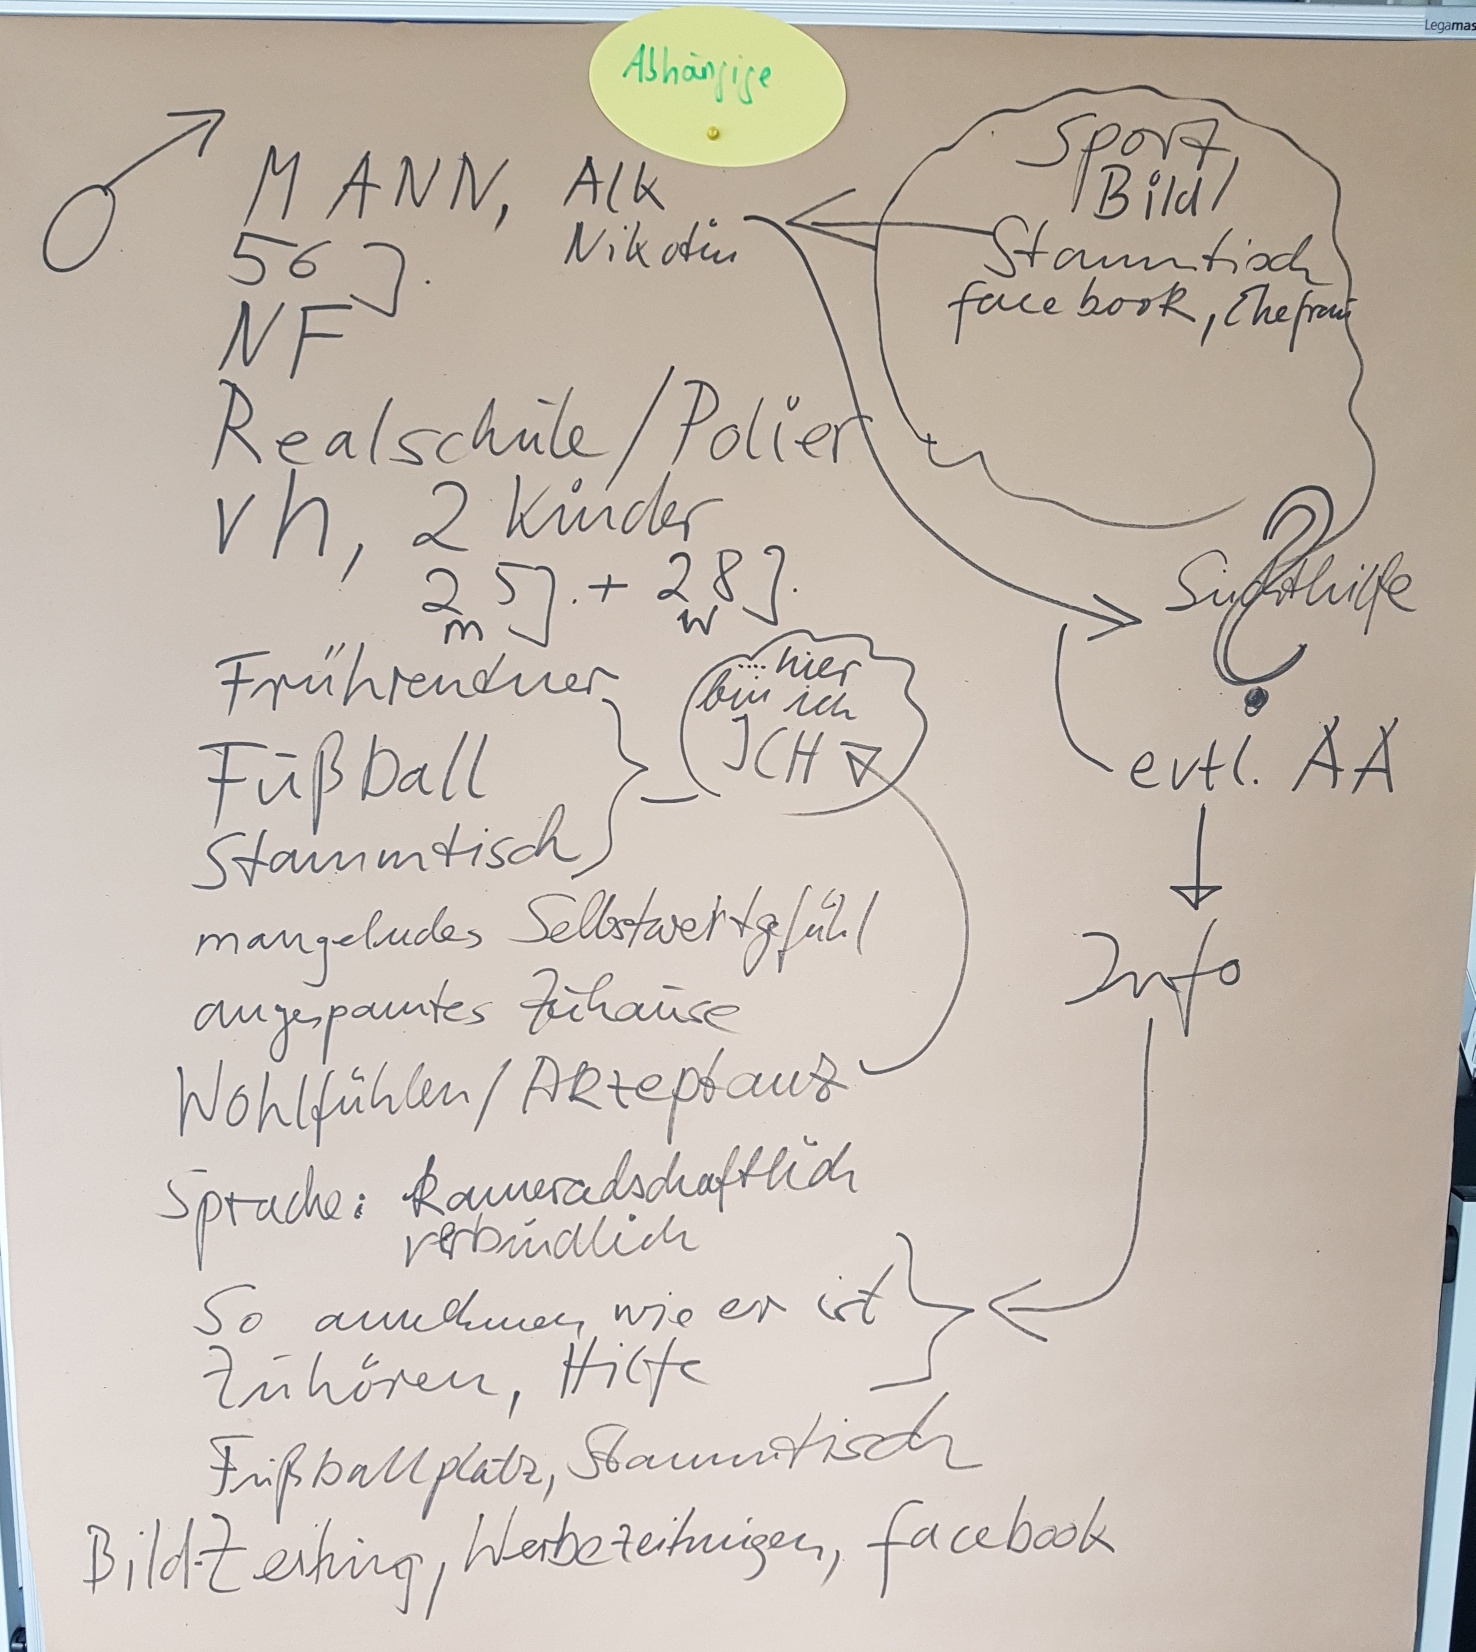 Legamas
Abhängige
MANN, Alk
Nikotin
56 J.
NF
Realschule/Polier
vh, 2 Kinder
25 J. + 28 J.
m w
Frührentner
Fußball
Stammtisch
.... hier
bin ich
ICH
mangelndes Selbstwertgefühl
angespanntes Zuhause
Wohlfühlen/Akzeptanz
Sprache: kameradschaftlich
verbindlich
So annehmen, wie er ist
Zuhören, Hilfe
Fußballplatz, Stammtisch
Bild-Zeitung, Werbezeitungen, facebook
Sport,
Bild,
Stammtisch
facebook, Ehefrau
Suchthilfe
?
evtl. AA
Info